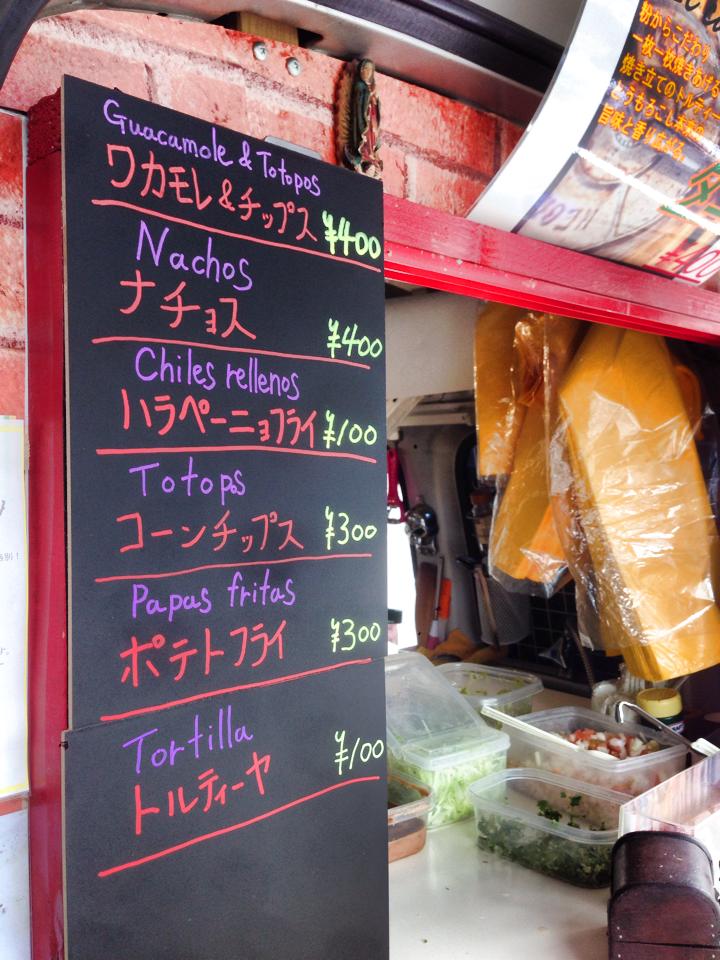 Guacamole & Totopos
ワカモレ&チップス ¥400
Nachos
ナチョス ¥400
Chiles rellenos
ハラペーニョフライ ¥100
Totops
コーンチップス ¥300
Papas fritas
ポテトフライ ¥300
Tortilla
トルティーヤ ¥100
粉からこだわり
一枚一枚焼きあげる
焼き立てのトルティー
とうもろこし本来の
旨味と香りたる。